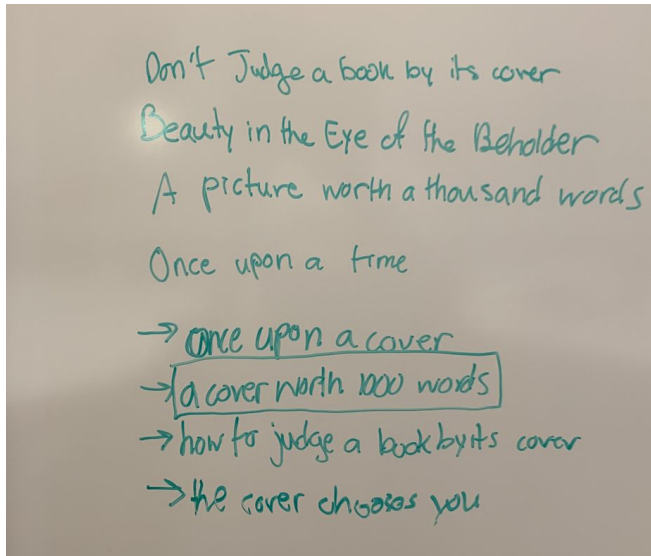 Don't Judge a book by its cover
Beauty in the Eye of the Beholder
A picture worth a thousand words
Once upon a time
→ once upon a cover
→ a cover worth 1000 words
→ how to judge a book by its cover
→ the cover chooses you